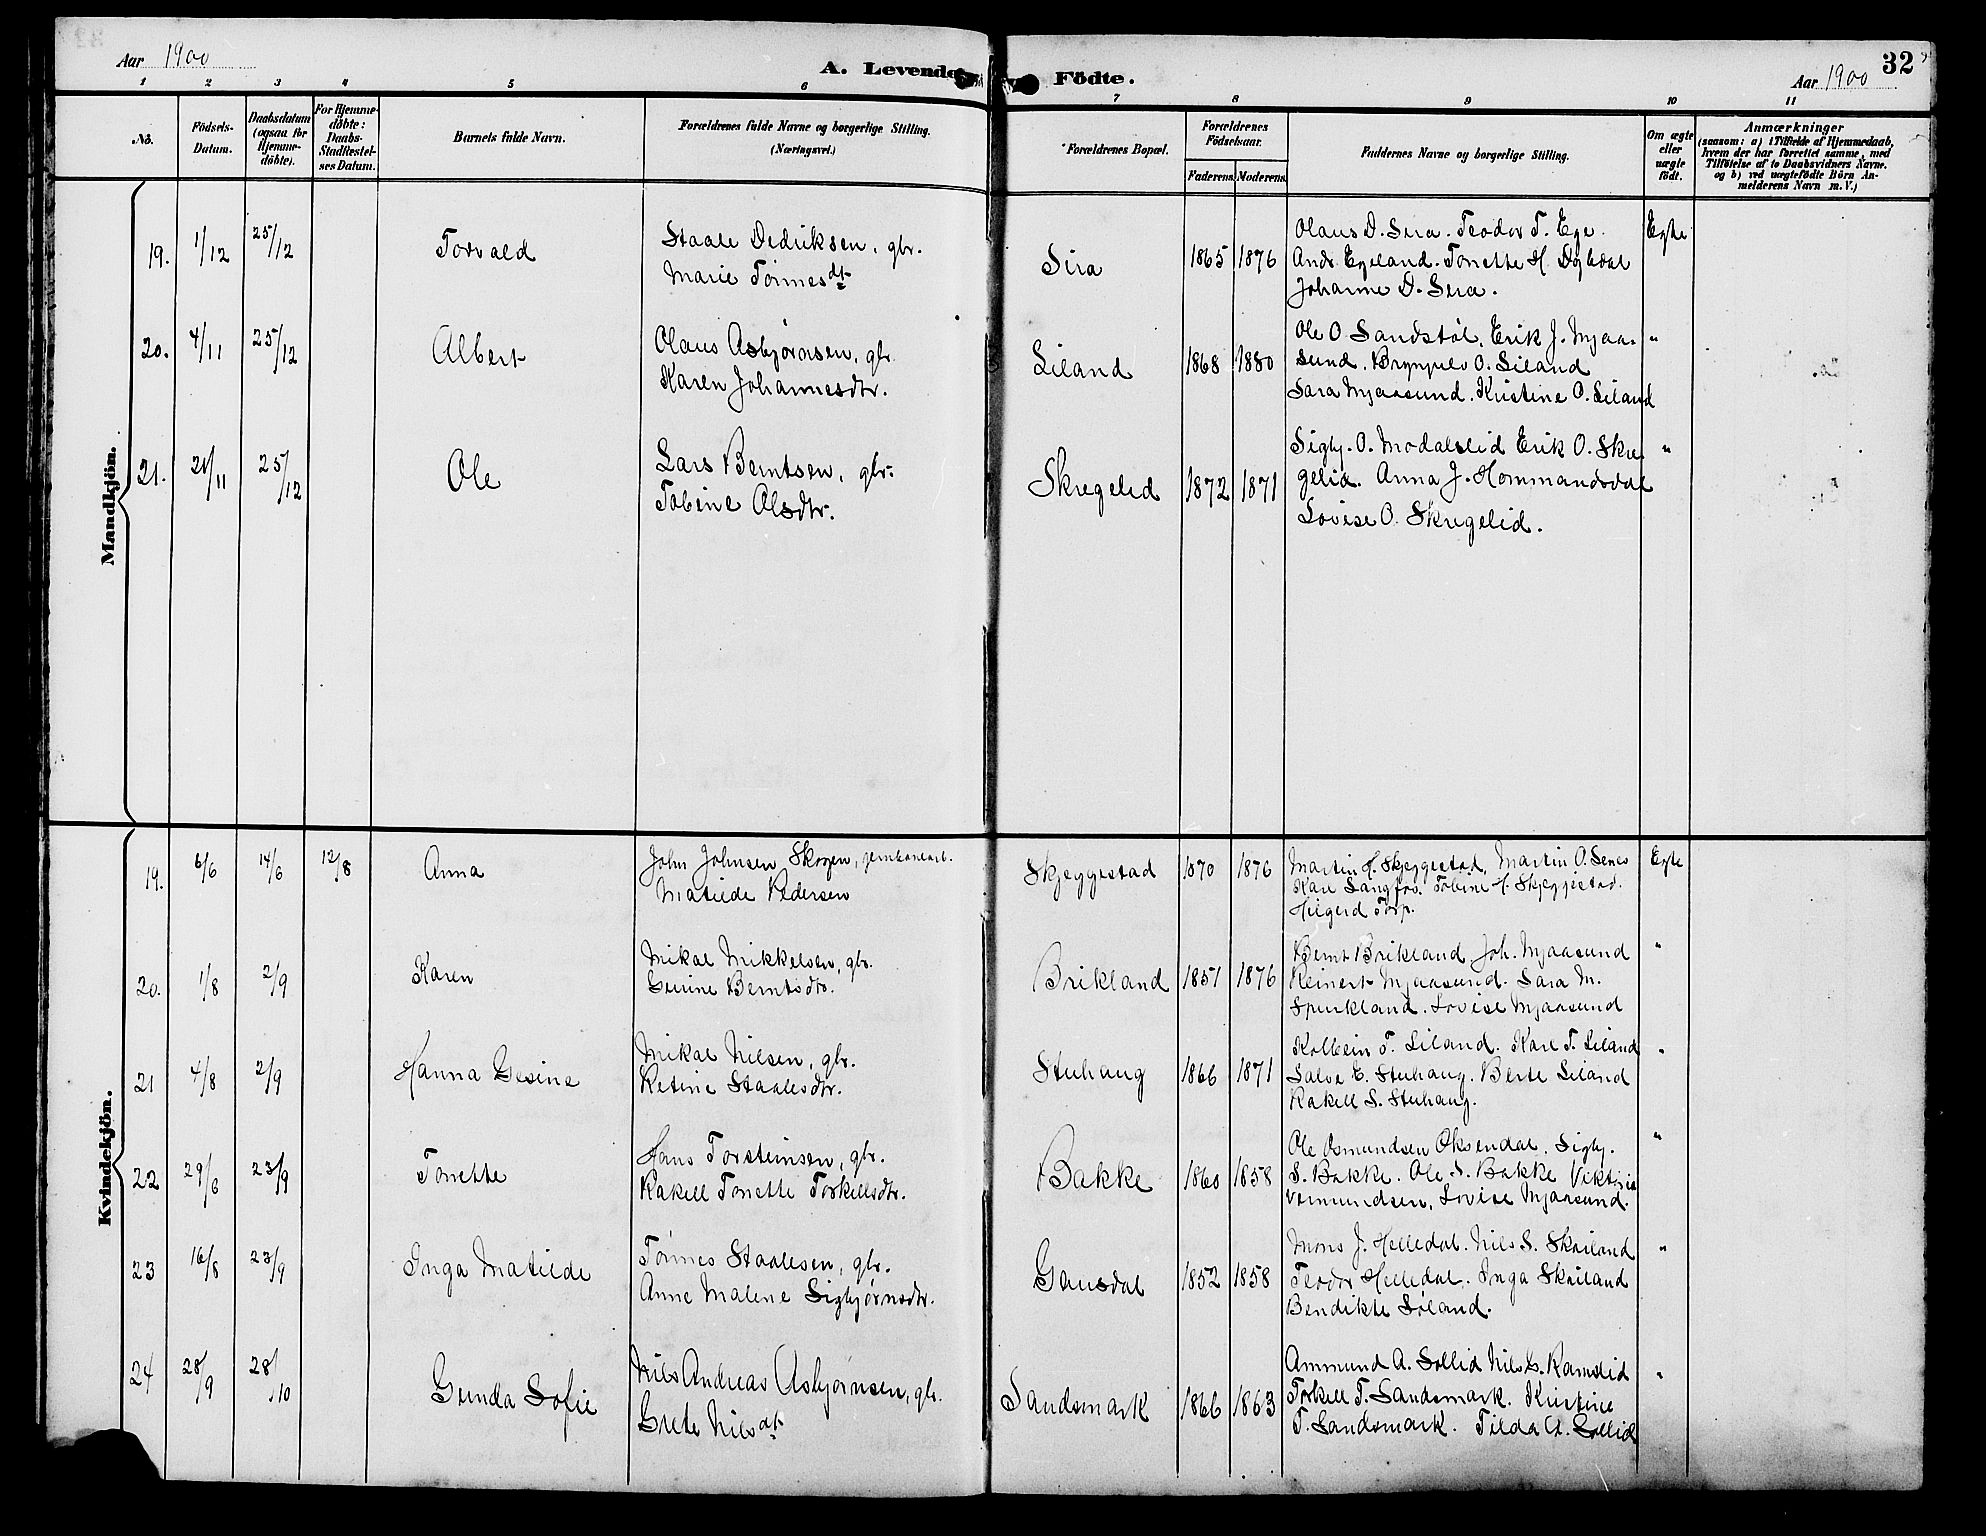 Aar 1900
A. Levende Födte.
Aar 1900
32
1 2 3 4 5 6 7 8 9 10 11
No.
Födsels-Datum.
Daabsdatum (ogsaa for Hjemme-döbte).
For Hjemme-döbte: Daabs-Stadfestel-ses Datum.
Barnets fulde Navn.
Forældrenes fulde Navne og borgerlige Stilling.
(Næringsvei.)
Forældrenes Bopæl.
Forældrenes Födselsaar.
Faderens Moderens
Faddernes Navne og borgerlige Stilling.
Om ægte eller uægte födt.
Anmærkninger
(saasom: a) i Tilfælde af Hjemmedaab,
hvem der har forrettet samme, med
Tilföielse af to Daabsvidners Navne.
og b) ved uægtefödte Börn An-
melderens Navn m. V.)
Mandkjön.
19. 1/12 25/12 Torvald
Staale Dediksen, gbr.
Marie Tønnesdt.
Sira 1865 1876
Olaus D. Sira. Teodor T. Ege.
Andr. Egeland. Tonette H. Dybdal
Johanne D. Sira.
Egte
20. 4/11 25/12 Albert
Olaus Asbjørnsen, gbr.
Karen Johannesdtr.
Liland 1868 1880
Ole O. Sandstøl, Erik J. Mjaa-
sund. Brynjulv O. Liland
Sara Mjaasund. Kristine O. Liland
"
21. 21/11 25/12 Ole
Lars Berntsen, gbr.
Tobine Olsdtr.
Skregelid 1872 1871
Sigbj. O. Modalslid Erik O. Skre-
gelid. Anna J. Hommandsdal
Lovise O. Skregelid.
"
Kvindekjön.
19. 6/6 14/6 12/8 Anna
John Johnsen Skogen,
Matilde Pedersen
Skjeggestad 1870 1876
Martin H. Skjeggestad, Martin O. Senes
Karl Langfos. Tobine H. Skjeggestad.
Hilgerd Torp.
Egte
20. 1/8 2/9 Karen
Mikal Mikkelsen, gbr.
Gurine Berntsdtr.
Brikland 1851 1876
Bernt Brikland Joh. Mjaasund
Reinert Mjaasund. Sara M.
Spurkland. Lovise Mjaasund
"
21 4/8 2/9 Hanna Gesine
Mikal Nilsen, gbr.
Retine Staalesdtr.
Stuhaug 1866 1871
Kolbein T. Liland. Karl T. Liland
Salve E. Stuhaug. Berte Liland
Rakell S. Stuhaug.
"
22 29/6 23/9 Tonette
Hans Torsteinsen, gbr.
Rakell Tonette Torkellsdtr.
Bakke 1860 1858
Ole Osmundsen Øksendal. Sigbj.
S. Bakke. Ole S. Bakke Viktoria
Osmundsen, Lovise Mjaasund.
"
23 16/8 23/9 Inga Matilde
Tønnes Staalesen, gbr.
Anne Malene Sigbjørnsdtr.
Gausdal 1852 1858
Mons J. Helledal. Nils S. Skailand
Teodor Helledal. Inga Skailand
Bendikte Søland.
"
24 28/9 28/10 Gunda Sofie
Nils Andreas Asbjørnsen, gbr.
Grete Nilsdt.
Sandsmark 1866 1863
Ammund A. Sollid Nils G. Ramslid
Torkell T. Sandsmark. Kristine
T. Sandsmark. Tilda A. Sollid
"